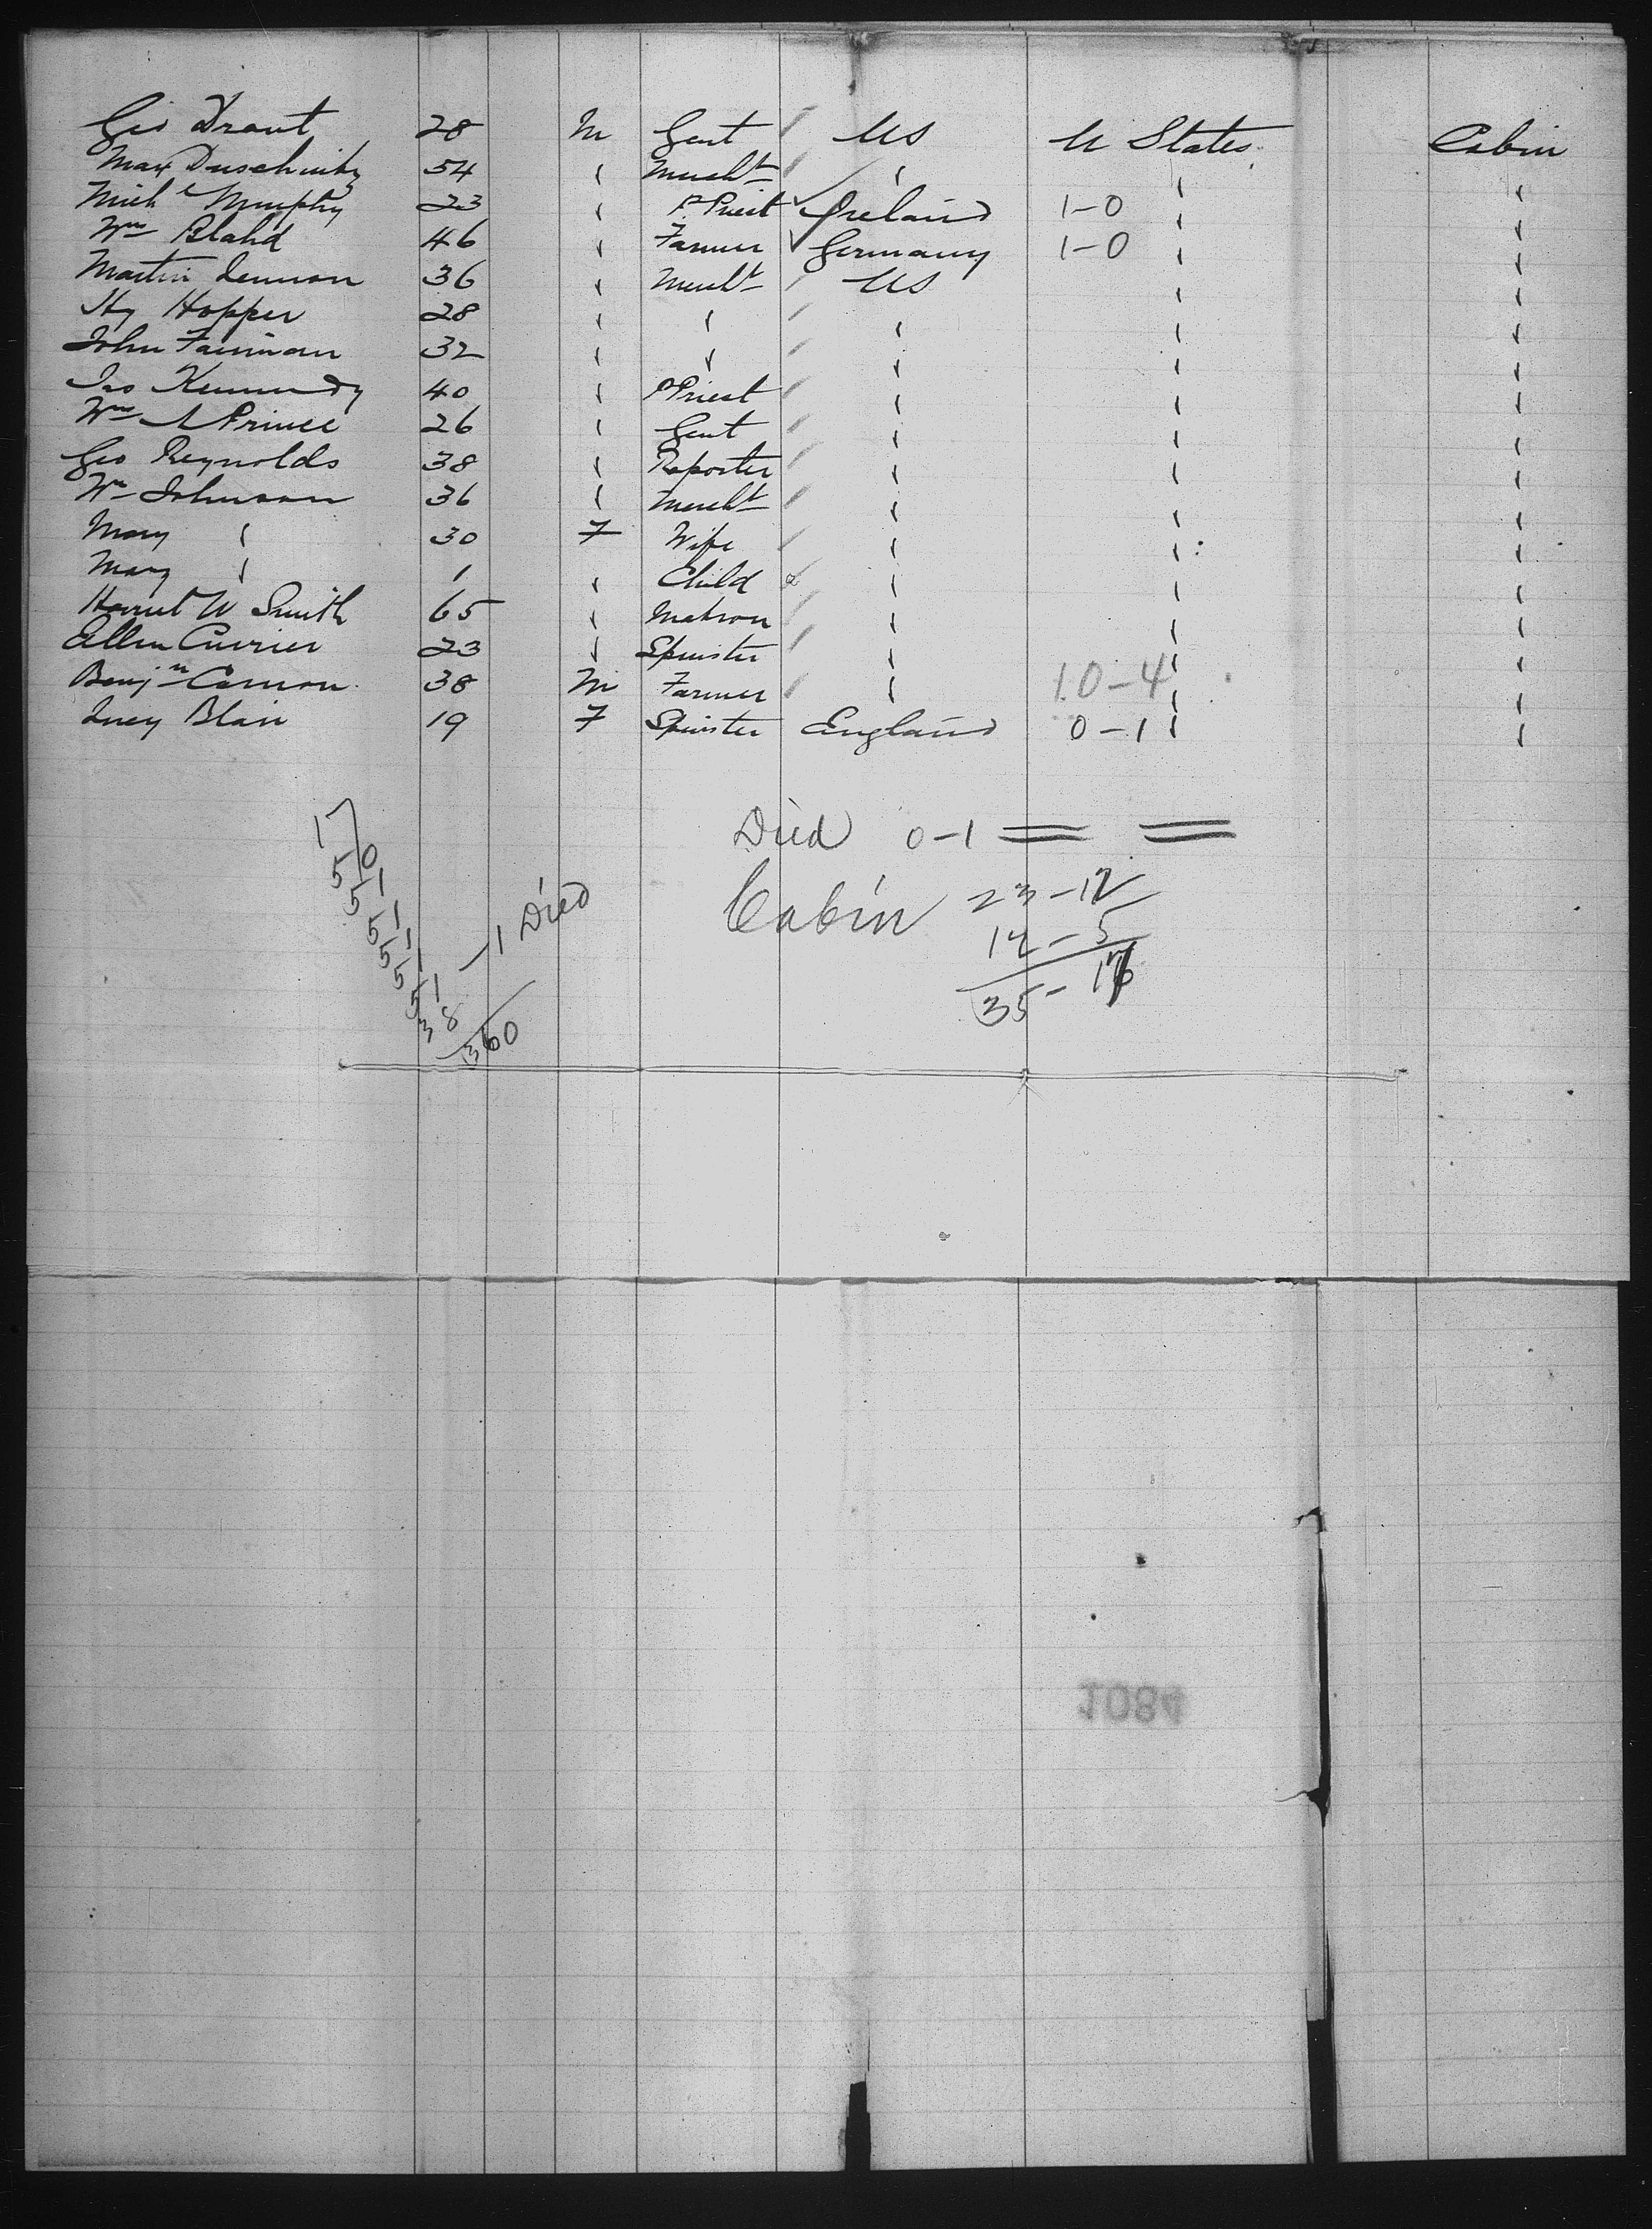 Geo Drout 28 M Gent US U States Cabin
Max Duschinsky 54 " Mercht " " "
Michl Murphy 23 " P. Priest Ireland 1-0 " "
Wm Blahd 46 " Farmer Germany 1-0 " "
Martin Lennon 36 " Mercht US " "
Hy Hopper 28 " " " " "
John Fairman 32 " " " " "
Jas Kennedy 40 " P Priest " " "
Wm A Prince 26 " Gent " " "
Geo Reynolds 38 " Reporter " " "
Wm Johnson 36 " Mercht " " "
Mary " 30 F Wife " " "
Mary " 1 " Child " " "
Harriet W Smith 65 " Matron " " "
Ellen Currier 23 " Spinster " " "
Benjn Cannon 38 M Farmer " 10-4 " "
Lucy Blair 19 F Spinster England 0-1 " "
Died 0-1
Cabin 23-12
12-5
35-17
17
50
51
51
51
51
51
38 -1 Died
360
1084